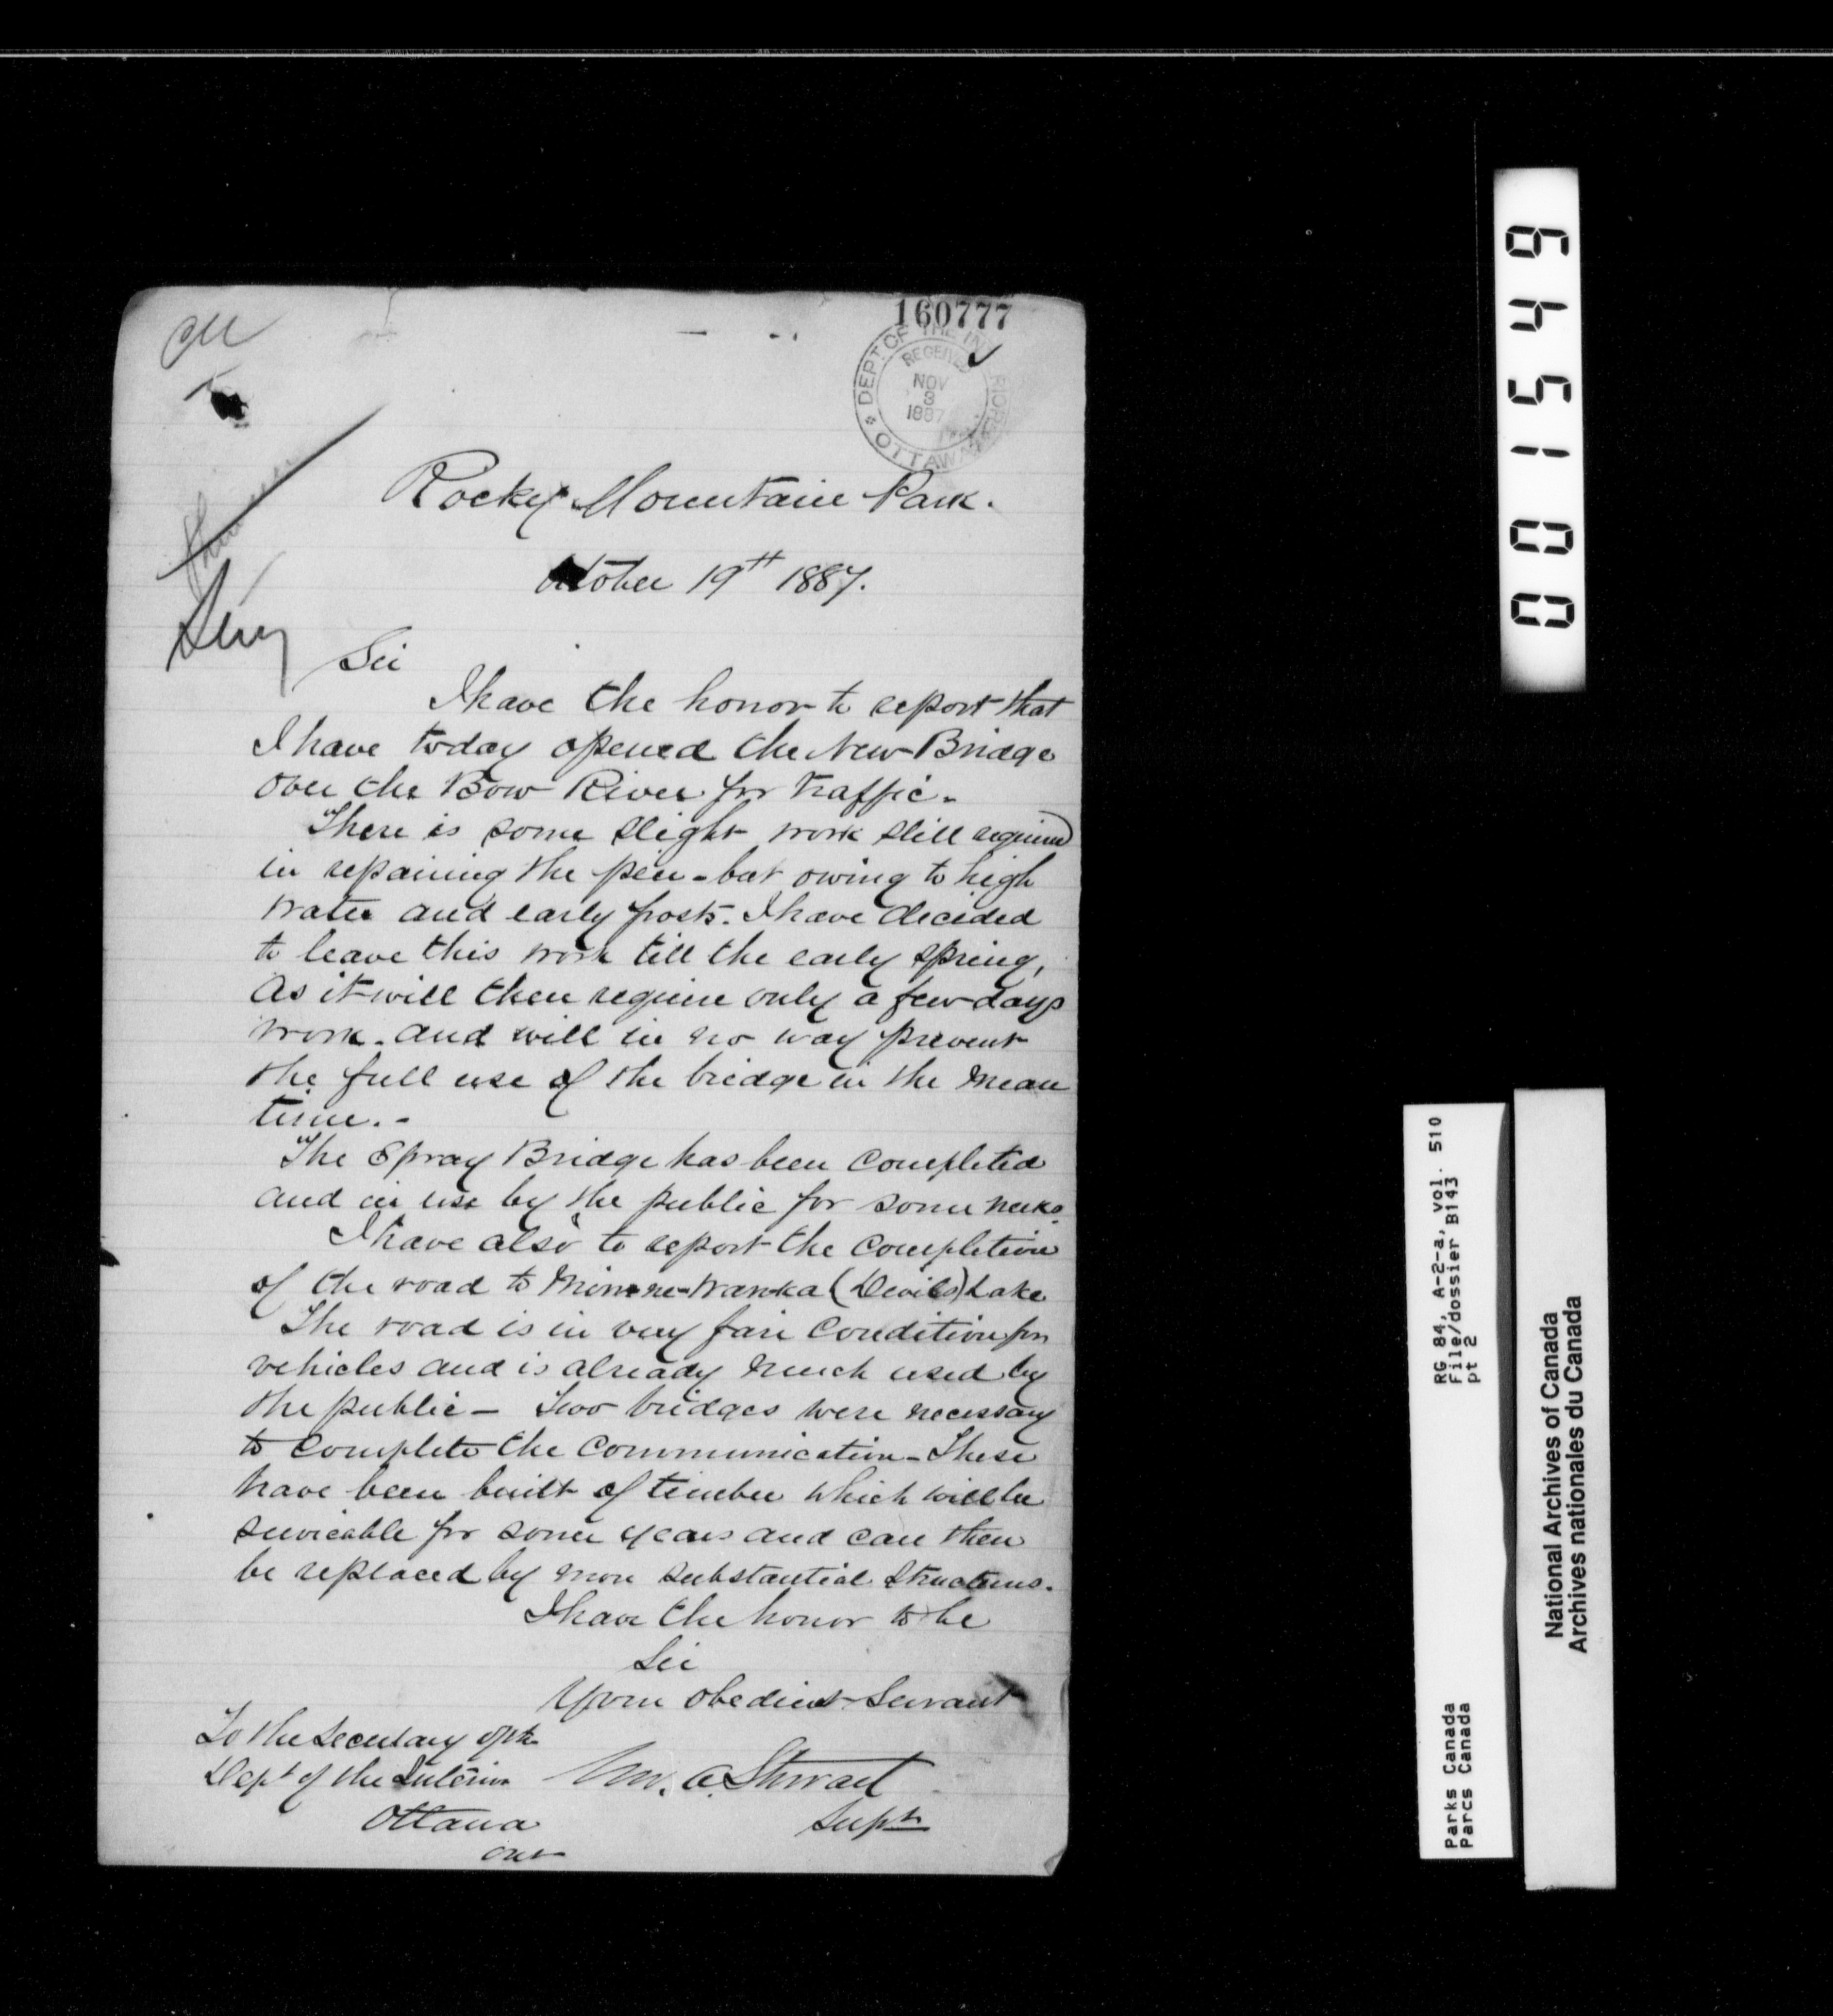 160777
DEPT. OF THE INTERIOR OTTAWA
RECEIVED
NOV
3
1887
Rocky Mountain Park.
October 19th 1887.
Sir
I have the honor to report that
I have today opened the New Bridge
over the Bow River for traffic.
There is some slight work still required
in repairing the pier - but owing to high
water and early frosts. I have decided
to leave this work till the early spring,
as it will then require only a few days
work. and will in no way prevent
the full use of the bridge in the mean
time. -
The Spray Bridge has been completed
and in use by the public for some weeks.
I have also to report the completion
of the road to Minne-wanka (Devils) Lake
The road is in very fair condition for
vehicles and is already much used by
the public - Two bridges were necessary
to complete the communication - These
have been built of timber which will be
servicable for some years and can then
be replaced by more substantial structures.
I have the honor to be
Sir
Your obedient Servant
To the Secretary of the
Dept of the Interior
Geo. A. Stewart
Ottawa
Supt
Ont
0001549
RG 84, A-2-a, vol. 510
File/dossier B143
pt 2
Parks Canada
Parcs Canada
National Archives of Canada
Archives nationales du Canada